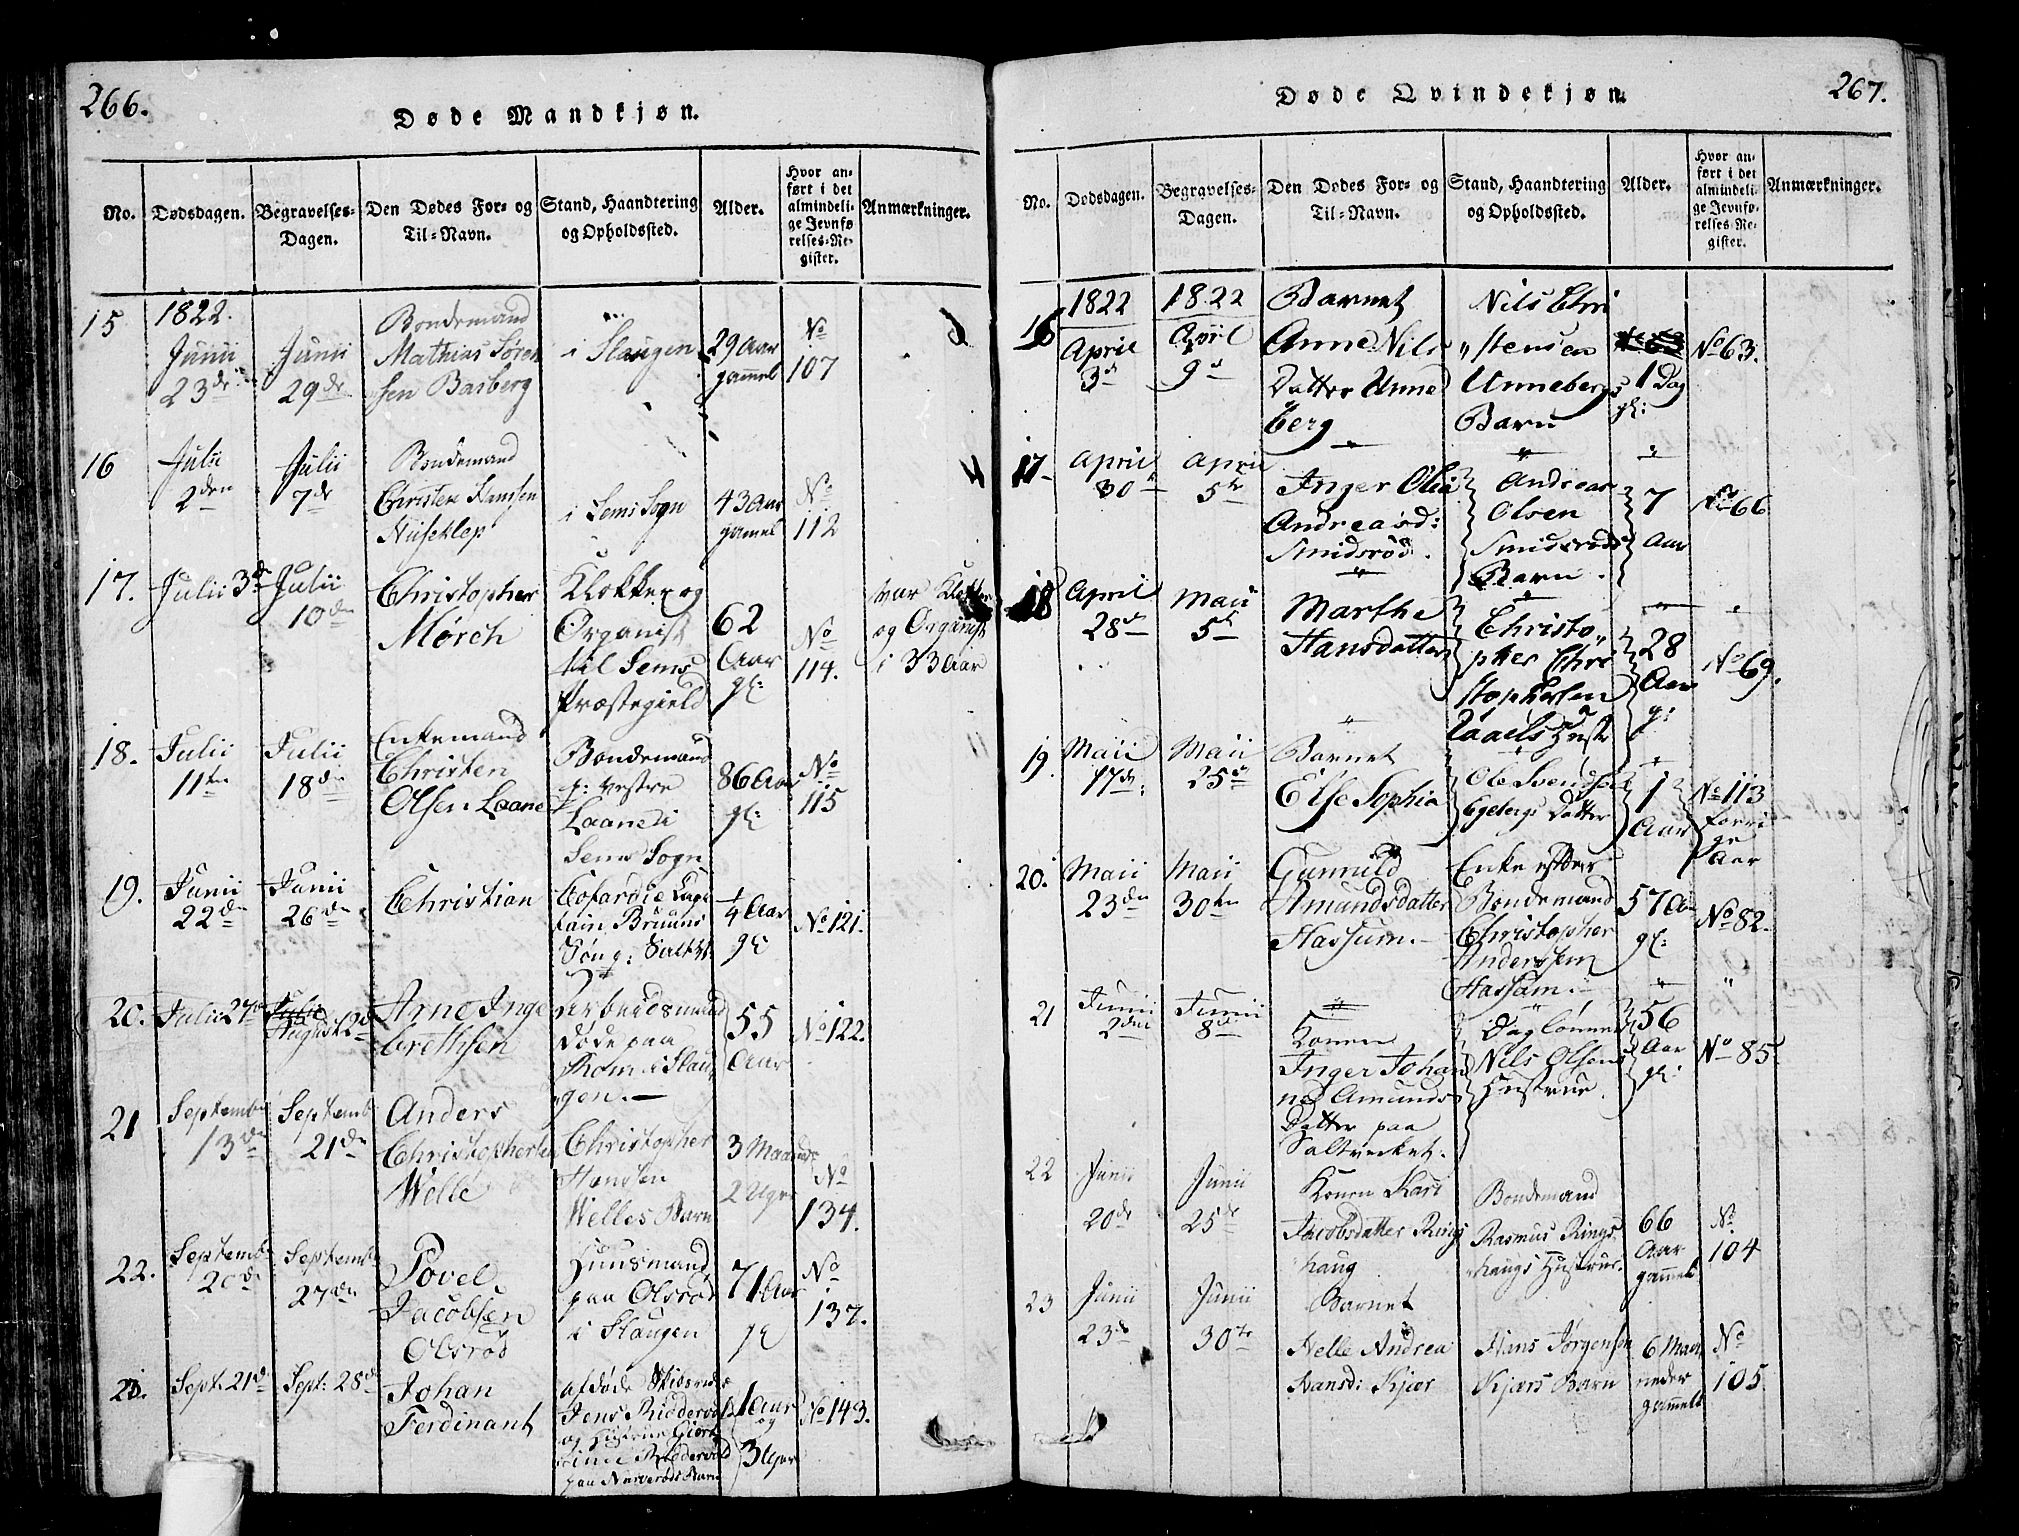 266.
Døde Mandkjøn.
No.
Dødsdagen.
Begravelses-
Dagen.
Den Dødes For- og
Til-Navn.
Stand, Haandtering
og Opholdssted.
Alder.
Hvor an-
ført i det
almindeli-
ge Jevnfø-
relses-Re-
gister.
Anmærkninger.
15
1822.
Junii
23de
Junii
29de
Bondemand
Mathias Søren
sen Basberg
i Slaugen
29 Aar
gammel
No
107
16
Julii
2den
Julii
7de
Bondemand
Christen Hansen
i Sems Sogn
43 Aar
gamel
No
112
17.
Julii 3de
Julii
10de
Christopher
Mørch
Klokker og
Organist
til Sems
Præstegield
62
Aar
gl:
No
114.
var Klokker
og Organist
i 33 Aar
18.
Julii
11te
Julii
18de
Enkemand
Christen
Olsen Laane
Bondemand
p: vestre
Laane i
Sems Sogn
86 Aar
gl:
No
115
19.
Junii
22de
Junii
26de
Christian
Cofardie Cap
tain Bruuns
Søn p: Saltv:
1/4 Aar
gl
No 121.
20.
Julii 27de
Julii
August 2de
Arne Inge
brethsen
Arbeidsmand
døde paa
i Slau
gen.
55
Aar
No 122.
21
Septemb
13de
Septemb
21de
Anders
Christophersen
Welle
Christopher
Hansen
Welles Barn
3 Maaneder
2 Uger
No
134.
22.
Septemb
20de
Septemb
27de
Povel
Jacobsen
Olsrød
Huusmand
paa Olsrød
i Slaugen
71 Aar
gl
No
137.
23.
Sept. 21de
Sept: 28de
Johan
Ferdinant
afdøde
Jens Riddervold
og Hustrue
Riddervold
paa Narverøds Barn
1 Aar
og
3 Uger
No 143.
267.
Døde Qvindekjøn.
No.
Dødsdagen.
Begravelses-
Dagen.
Den Dødes For- og
Til-Navn.
Stand, Haandtering
og Opholdssted.
Alder.
Hvor an-
ført i det
almindeli-
ge Jevnfø-
relses-Re-
gister.
Anmærkninger.
16
1822
April
3de
1822
April
9de
Barnet
Anne Nils
Datter Unne
berg
Nils Chri
stensen
Unnebergs
Barn
1 Dag
gl:
No 63.
17
April
30te
April
5te
Inger Olia
Andreasd:
Smidsrød.
Andreas
Olsen
Smidsrøds
Barn.
7
Aar
No 66
18
April
28de
Maii
5te
Marthe
Hansdatter
Christo
pher Chri
stophersen
Raaels Hustr
28
Aar
g:
No 69.
19.
Maii
17de
Maii
25de
Barnet
Else Sophia
Ole Svendsen
Egebergs Datter
1
Aar
No 113
forri
ge
Aar
20.
Maii
23de
Maii
30te
Gunnild
Amundsdatter
Hassum.
Enke efter
Bondemand
Christopher
Anderssen
Hassum.
57 Aar
gl:
No 82.
21
Junii
2den
Junii
8de
Konen
Inger Johan
ne Amunds
Datter paa
Saltverket.
Daglønner
Nils Olsens
Hustrue.
56
Aar
gl:
No 85
22
Junii
20de
Junii
25de
Konen Kari
Jacobsdatter Rings
haug
Bondemand
Rasmus Rings
haugs Hustrue.
66
Aar
gammel
No
104
23
Junii
23de
Junii
30te
Barnet
Helle Andrea
Hansd: Kjær
Hans Jørgensen
Kjærs Barn
6 Maa
neder
gammelt
No
105